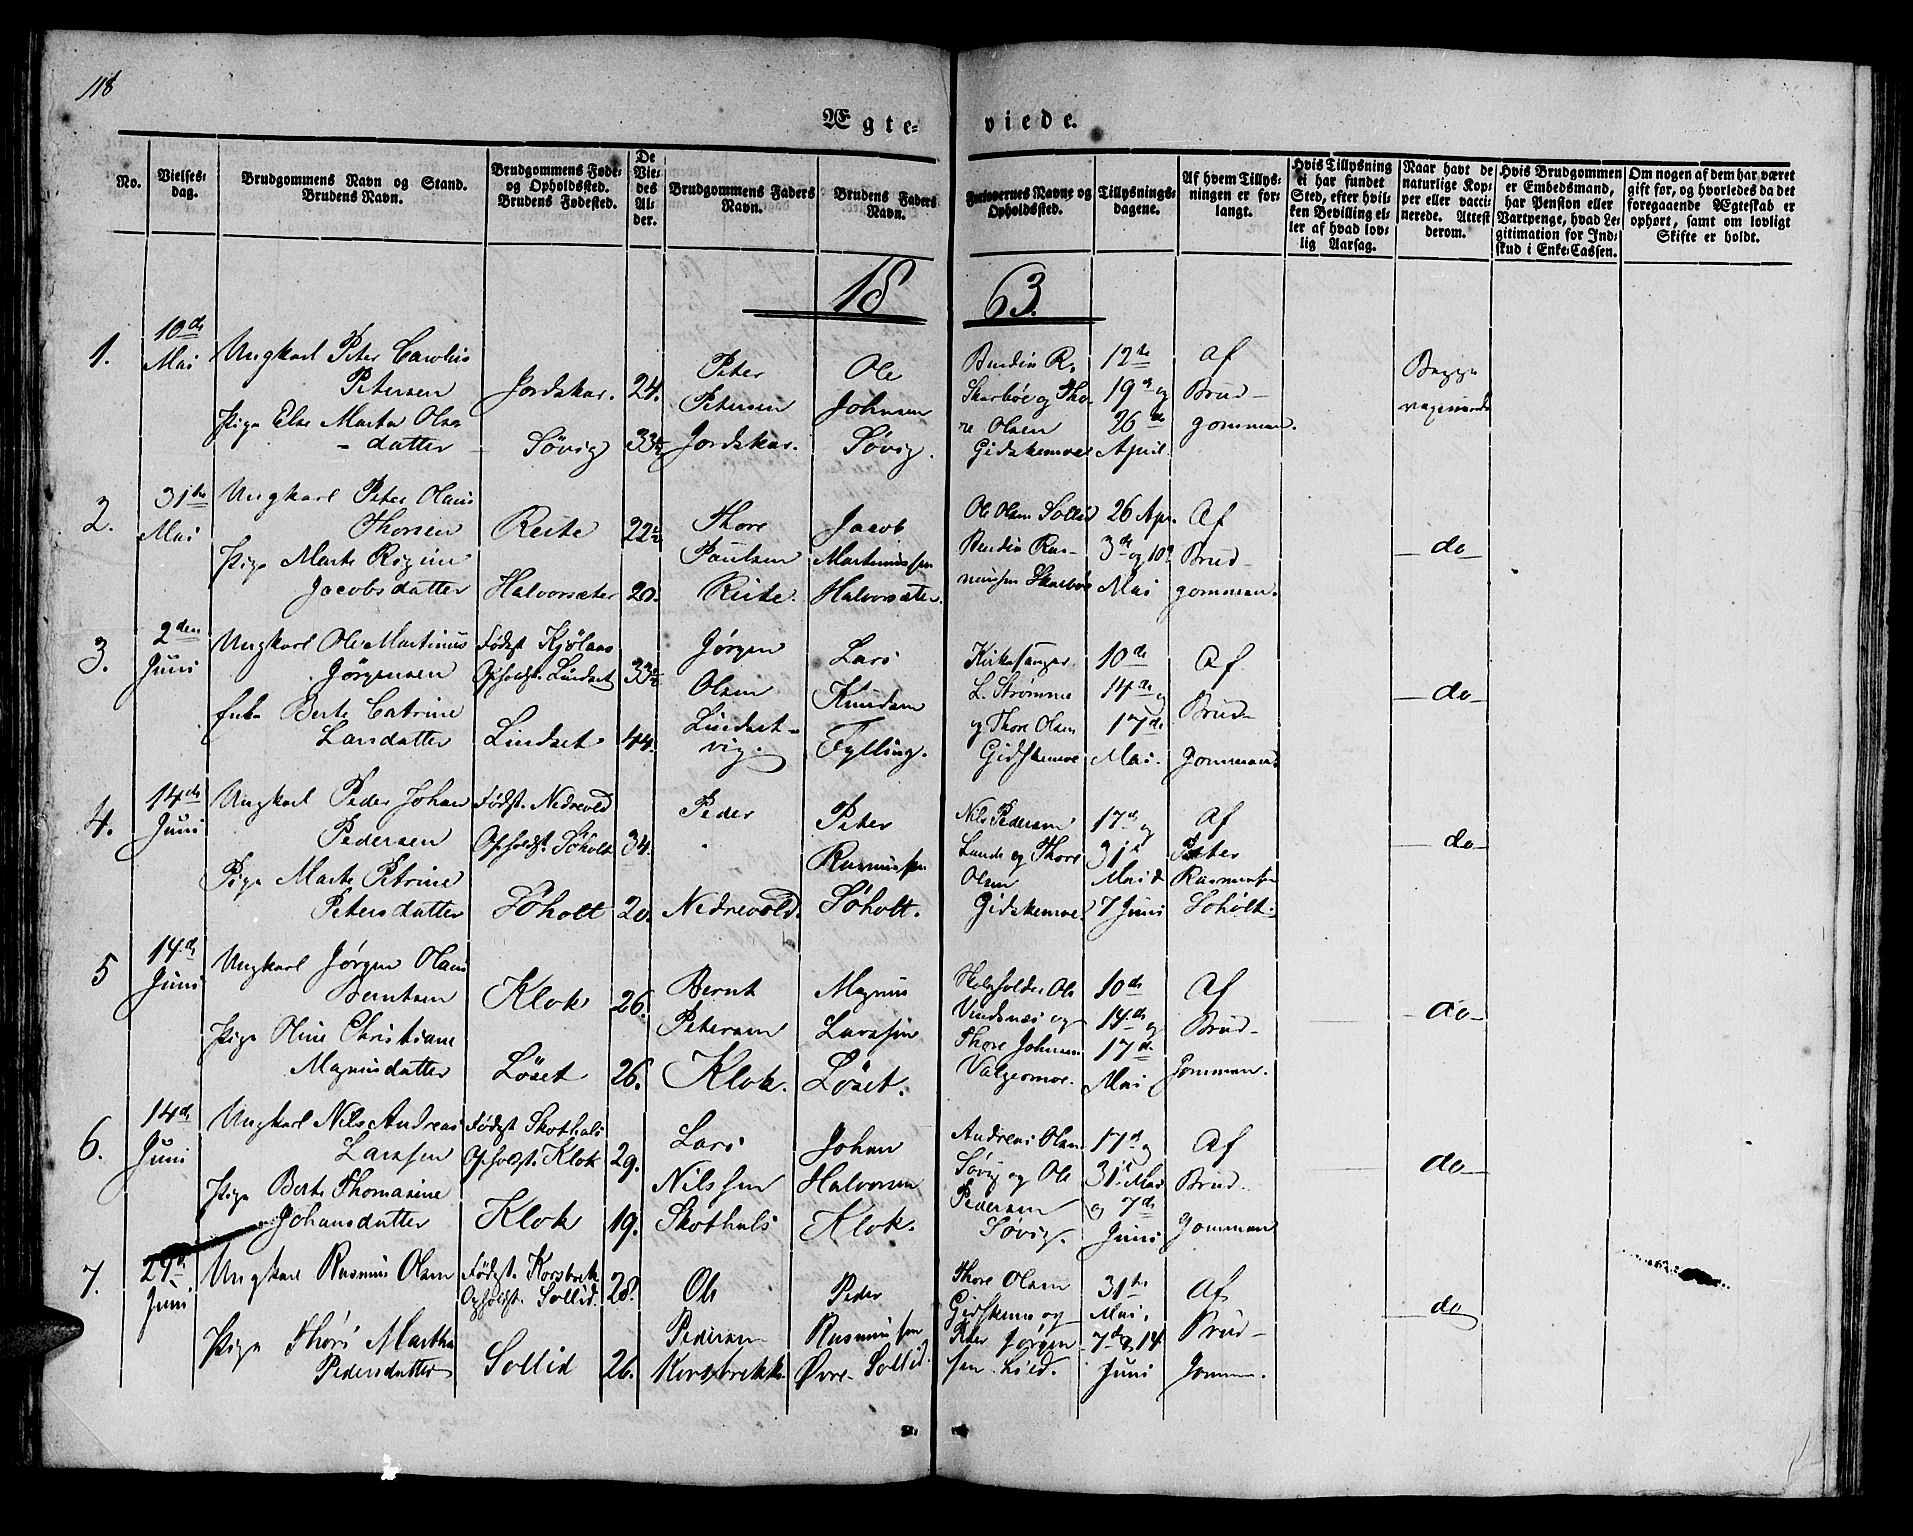 118
Ægte-
viede.
No.
Vielses-
dag.
Brudgommens Navn og Stand.
Brudens Navn.
Brudgommens Føde-
og Opholdssted.
Brudens Fødested.
De
Vie-
des
Al-
der.
Brudgommens Faders
Navn.
Brudens Faders
Navn.
Forlovernes Navne og
Opholdssted.
Tillysnings-
dagene.
Af hvem Tillys-
ningen er for-
langt.
Hvis Tillysning
ei har fundet
Sted, efter hvil-
ken Bevilling el-
ler af hvad lov-
lig Aarsag.
Naar havt de
naturlige Kop-
per eller vacci-
nerede. Attest
derom.
Hvis Brudgommen
er Embedsmand,
har Pension eller
Vartpenge, hvad Le-
gitimation for Ind-
skud i Enke-Cassen.
Om nogen af dem har været
gift før, og hvorledes da det
foregaaende Ægteskab er
ophørt, samt om lovligt
Skifte er holdt.
18 63.
1.
10de
Mai
Ungkarl Peter Carolius
Petersen
Pige Else Marta Ols-
datter
Jordskar.
Søvig
24.
33½
Peter
Petersen
Jordskar.
Ole
Johnsen
Søvig.
Bendix R.
Skarbøe og Tho-
re Olsen
Gidskemoe
12te
19de og
26de
April.
Af
Brud-
gommen.
Begge
vaxinerede
2.
31te
Mai
Ungkarl Peter Olaus
Thorsen
Pige Marte Regine
Jacobsdatter
Reite
Halvorsæter
22½
20.
Thore
Paulsen
Reite.
Jacob
Martinussen
Halvorsæter.
Ole Olsen Sollid
Bendix Ras-
mussen Skarbøe
26 Apr.
3de og 10de
Mai
Af
Brud-
gommen.
do
3.
2den
Juni
Ungkarl Ole Martinus
Jørgensen
Enke Berte Catrine
Larsdatter
Født. Kjølaas
Opholdst. Lindset
Lindset
33½
44.
Jørgen
Olsen
Lindset-
vig.
Lars
Knudsen
Fylling.
Kirkesanger
L. Strømme
og Thore Olsen
Gidskemoe
10de
14de og
17de
Mai.
Af
Brud-
gommen
do
4.
14de
Juni
Ungkarl Peder Johan
Pedersen
Pige Marte Petrine
Petersdatter
Født. Nedrevold
Opholdst. Søholt
Søholt
34.
20.
Peder
Nedrevold.
Peter
Rasmussen
Søholt.
Nils Pedersen
Lande og Thore
Olsen
Gidskemoe
17de og
31te
Mai &
7 Juni
Af
Peter
Rasmussen
Søholt.
do
5
14de
Juni
Ungkarl Jørgen Olaus
Berntsen
Pige Oline Christiane
Magnusdatter
Klok
Løset
26.
26.
Bernt
Petersen
Klok.
Magnus
Larssen
Løset.
Skoleholder Ole
Vindsnæs og
Thore Johnsen
Valgermoe.
10de
14de og
17de
Mai
Af
Brud-
gommen.
do
6.
14de
Juni
Ungkarl Nils Andreas
Larssen
Pige Berte Thomasine
Johansdatter
Født. Skothals
Opholdst. Klok
Klok
29.
19.
Lars
Nilssen
Skothals
Johan
Halvorsen
Klok.
Andreas Olsen
Søvig og Ole
Pedersen
Søvig.
17de og
31te Mai
og 7de
Juni
Af
Brud-
gommen
do
7.
29de
Juni
Ungkarl Rasmus Olsen
Pige Thore Martha
Pedersdatter
Født. Korsbrekk
Opholdst. Sollid.
Sollid
28.
26.
Ole
Pedersen
Korsbrekk
Peder
Rasmussen
Øvre-Sollid.
Thore Olsen
Gidskemo og
Peter Jørgen-
sen Lied.
31te
Mai,
7de & 14
Juni
Af
Brud-
gommen.
do